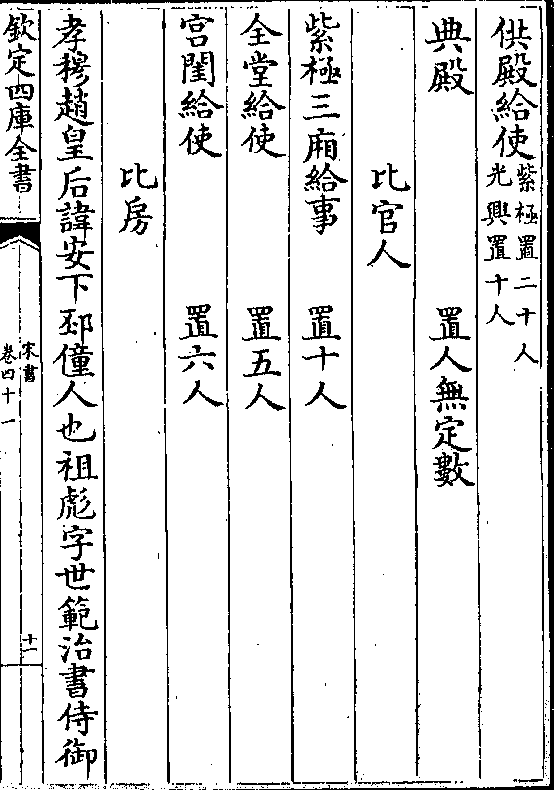 供殿給使紫極置二十人光興置十人
典殿 置人無定數
比官人
紫極三廂給事 置十人
全堂給使 置五人
宫閨給使 置六人
比房
孝穆趙皇后諱安下邳僮人也祖彪字世範治書侍御
欽定四庫全書
宋書
卷四十一
十一